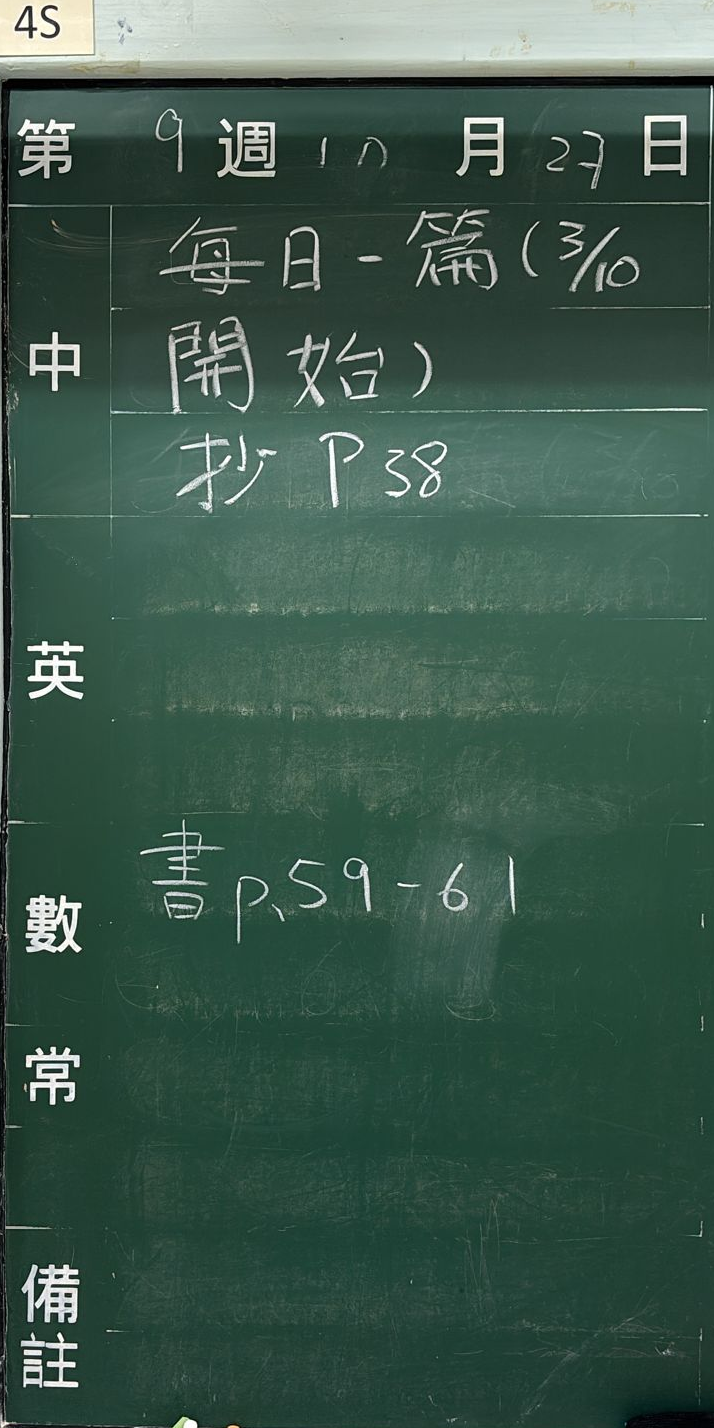 4S
第 9 週 10 月 27 日
中
每日一篇(3/10
開始)
抄 P 38
英
數
書 p.59-61
常
備註